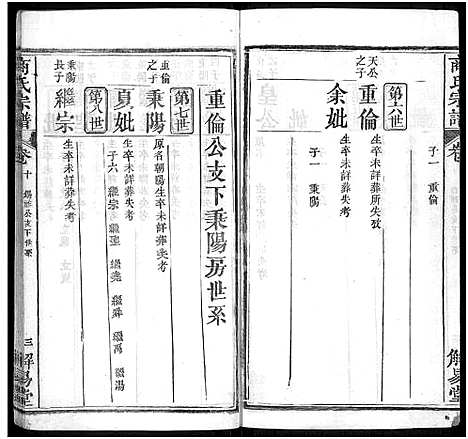 商氏宗譜
卷
解易堂
子一 重倫
第六世
天公之子
重倫
生卒未詳葬所失攷
余妣
生卒未詳葬失考
子一 秉陽
重倫公支下秉陽房世系
第七世
重倫之子
秉陽
原名朝陽生卒未詳葬失考
夏妣
生卒未詳葬失考
子六 繼宗 繼聖 繼堯 繼舜 繼禹 繼湯
第八世
秉陽長子
繼宗
生卒未詳葬失考
商氏宗譜
卷十
公支下世系
三
解易堂